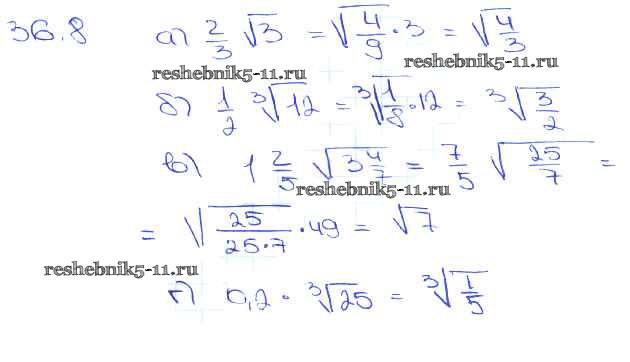 36.8 а) 2/3 √3 = √(4/9 · 3) = √(4/3)
reshebnik5-11.ru reshebnik5-11.ru
б) 1/2 ∛12 = ∛(1/8 · 12) = ∛(3/2)
в) 1 2/5 √(3 4/7) = 7/5 √(25/7) =
reshebnik5-11.ru
= √(25/(25·7) · 49) = √7
reshebnik5-11.ru
г) 0,2 · ∛25 = ∛(1/5)